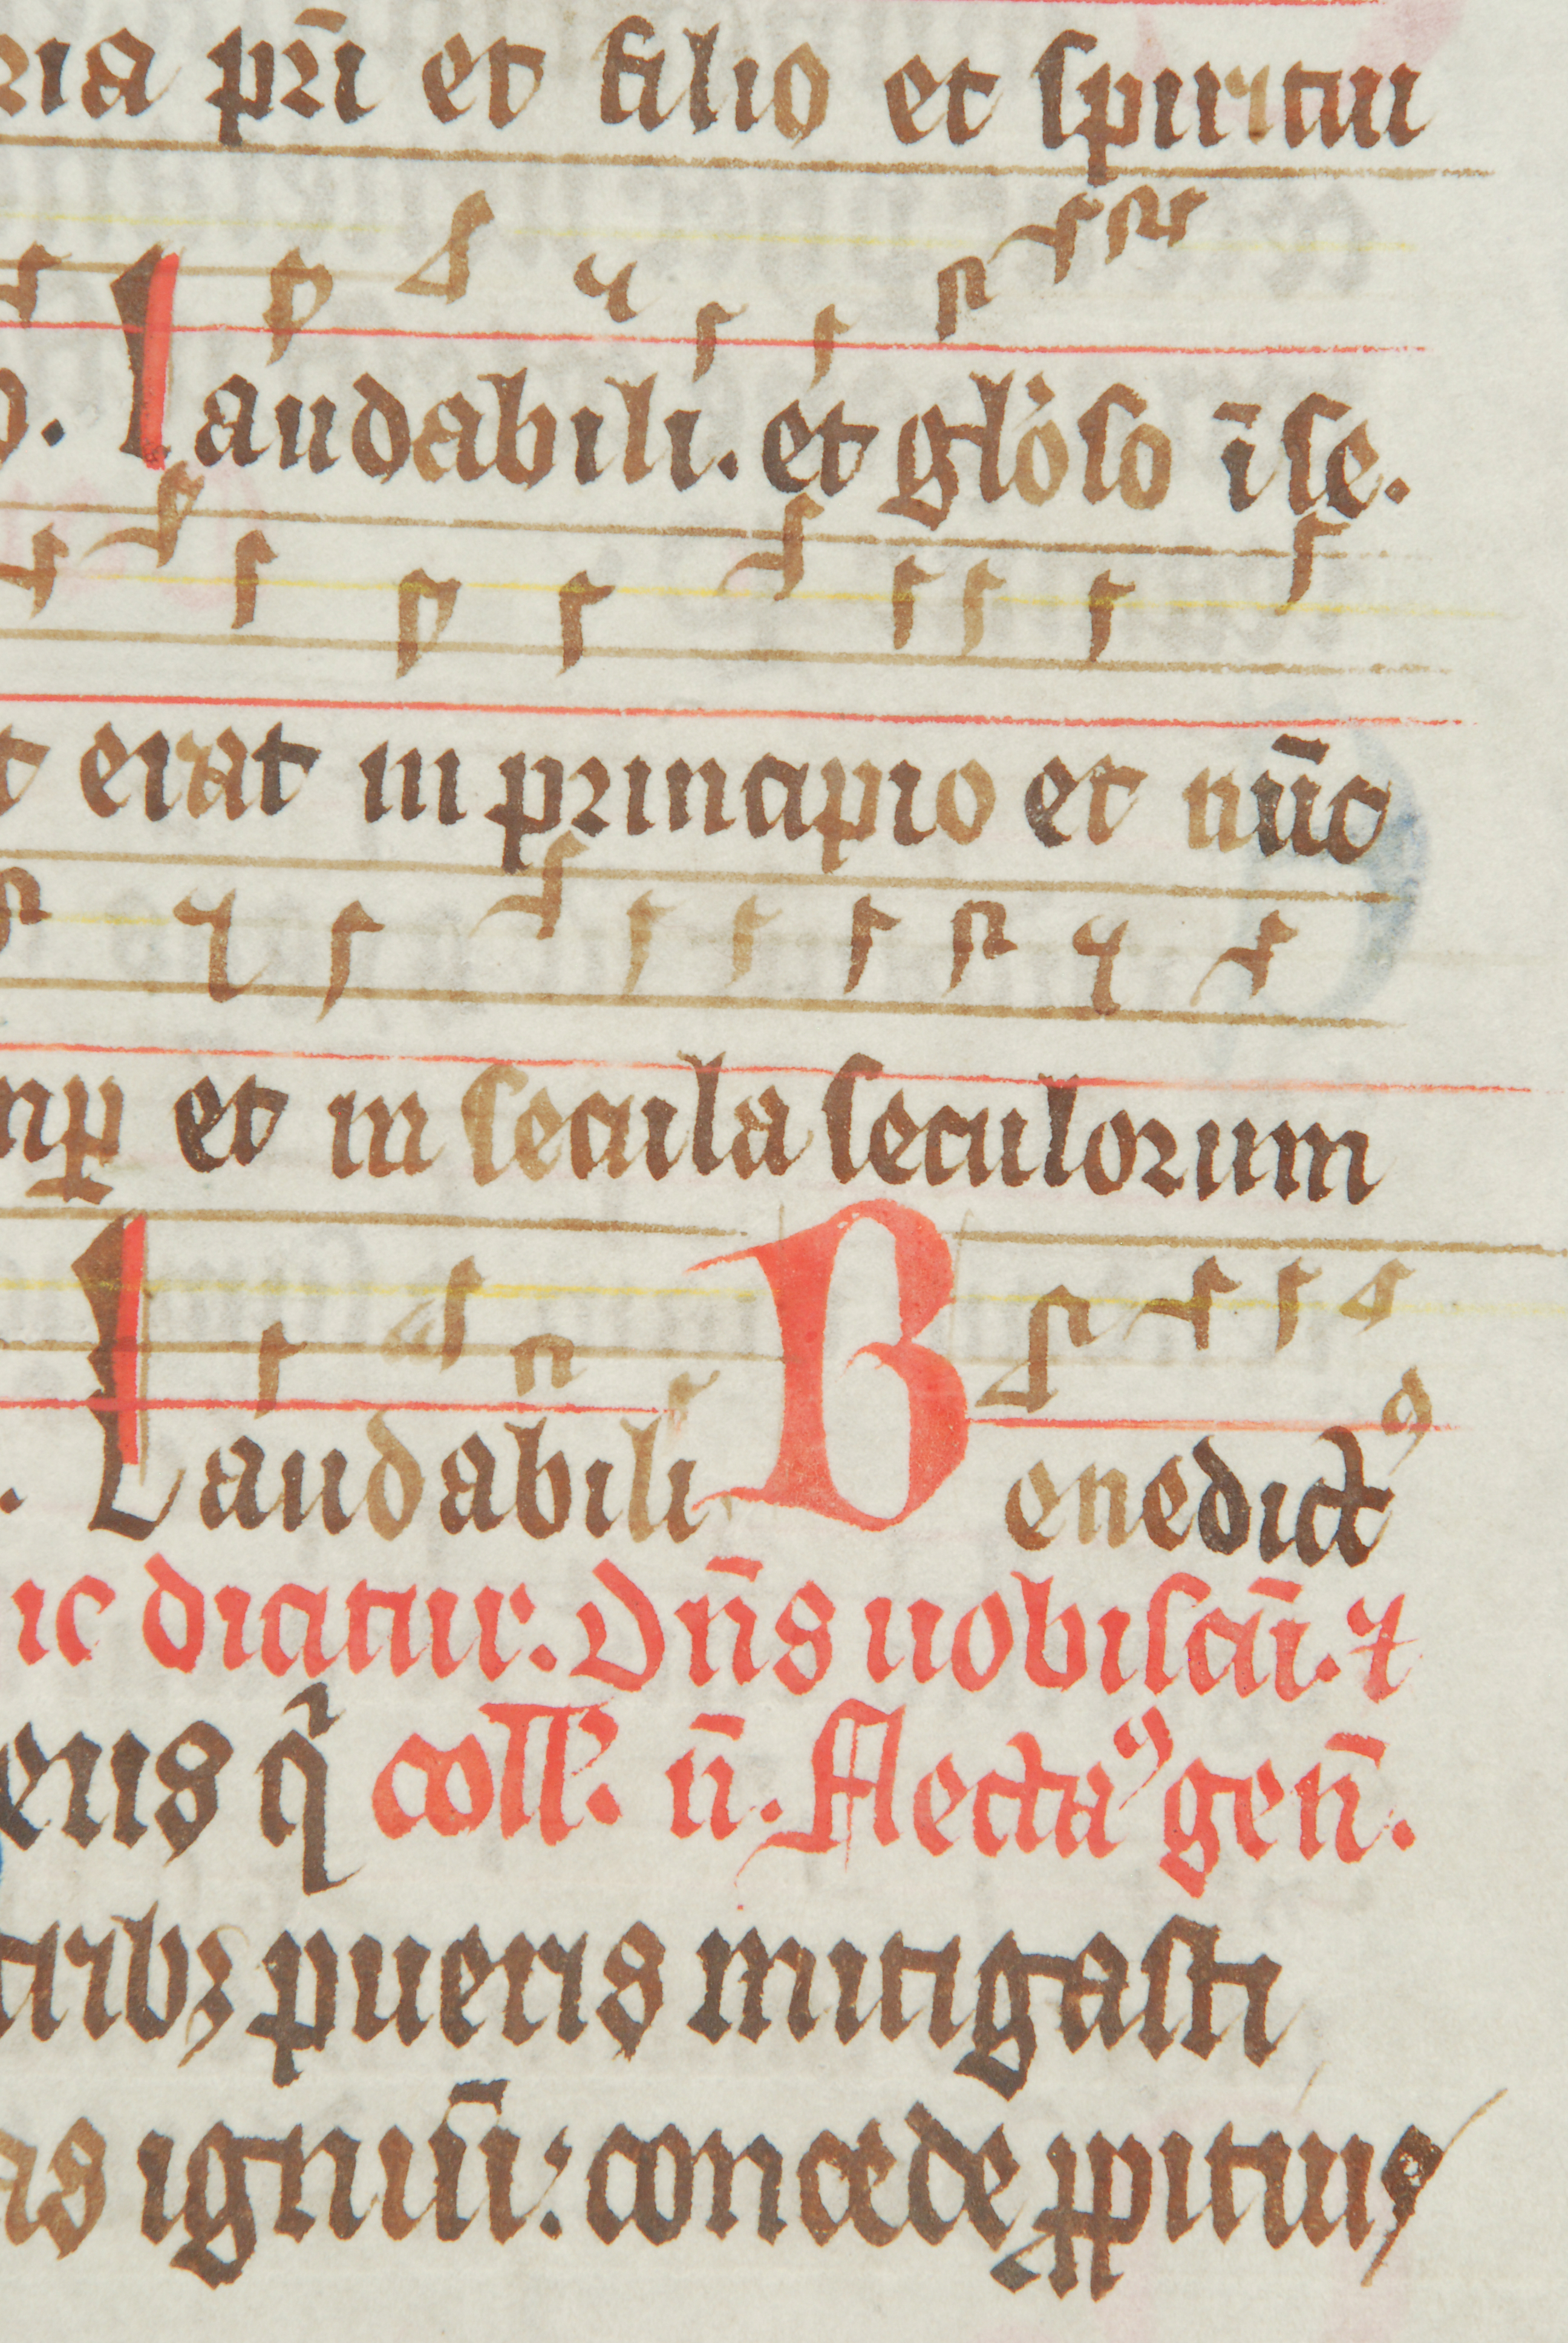 ria pr̄i et filio et spiritui
o. Laudabili. et gl'oso ī se.
t erat in principio et nūc
mꝑ et in secula seculorum
. Laudabili Benedictꝰ
ic dicatur. Dn̄s uobiscū. ⁊
eus qͥ coll'. n̄. flectaꝰ gen̄.
tribꝫ pueris mitigasti
as igniū: concede ꝓpitius